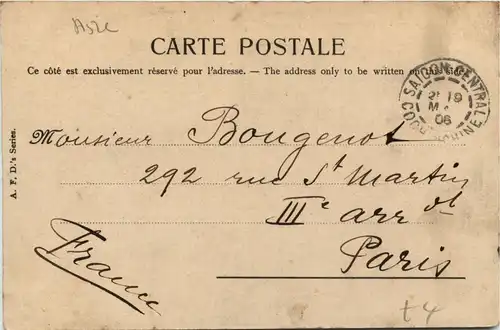 Asie
CARTE POSTALE
Ce côté est exclusivement réservé pour l'adresse. — The address only to be written on this side.
SAIGON-CENTRAL
19
06
COCHINCHINE
A. F. D.'s Series.
Monsieur Bougenot
292 rue St Martin
IIIe arrdt
Paris
France
t4